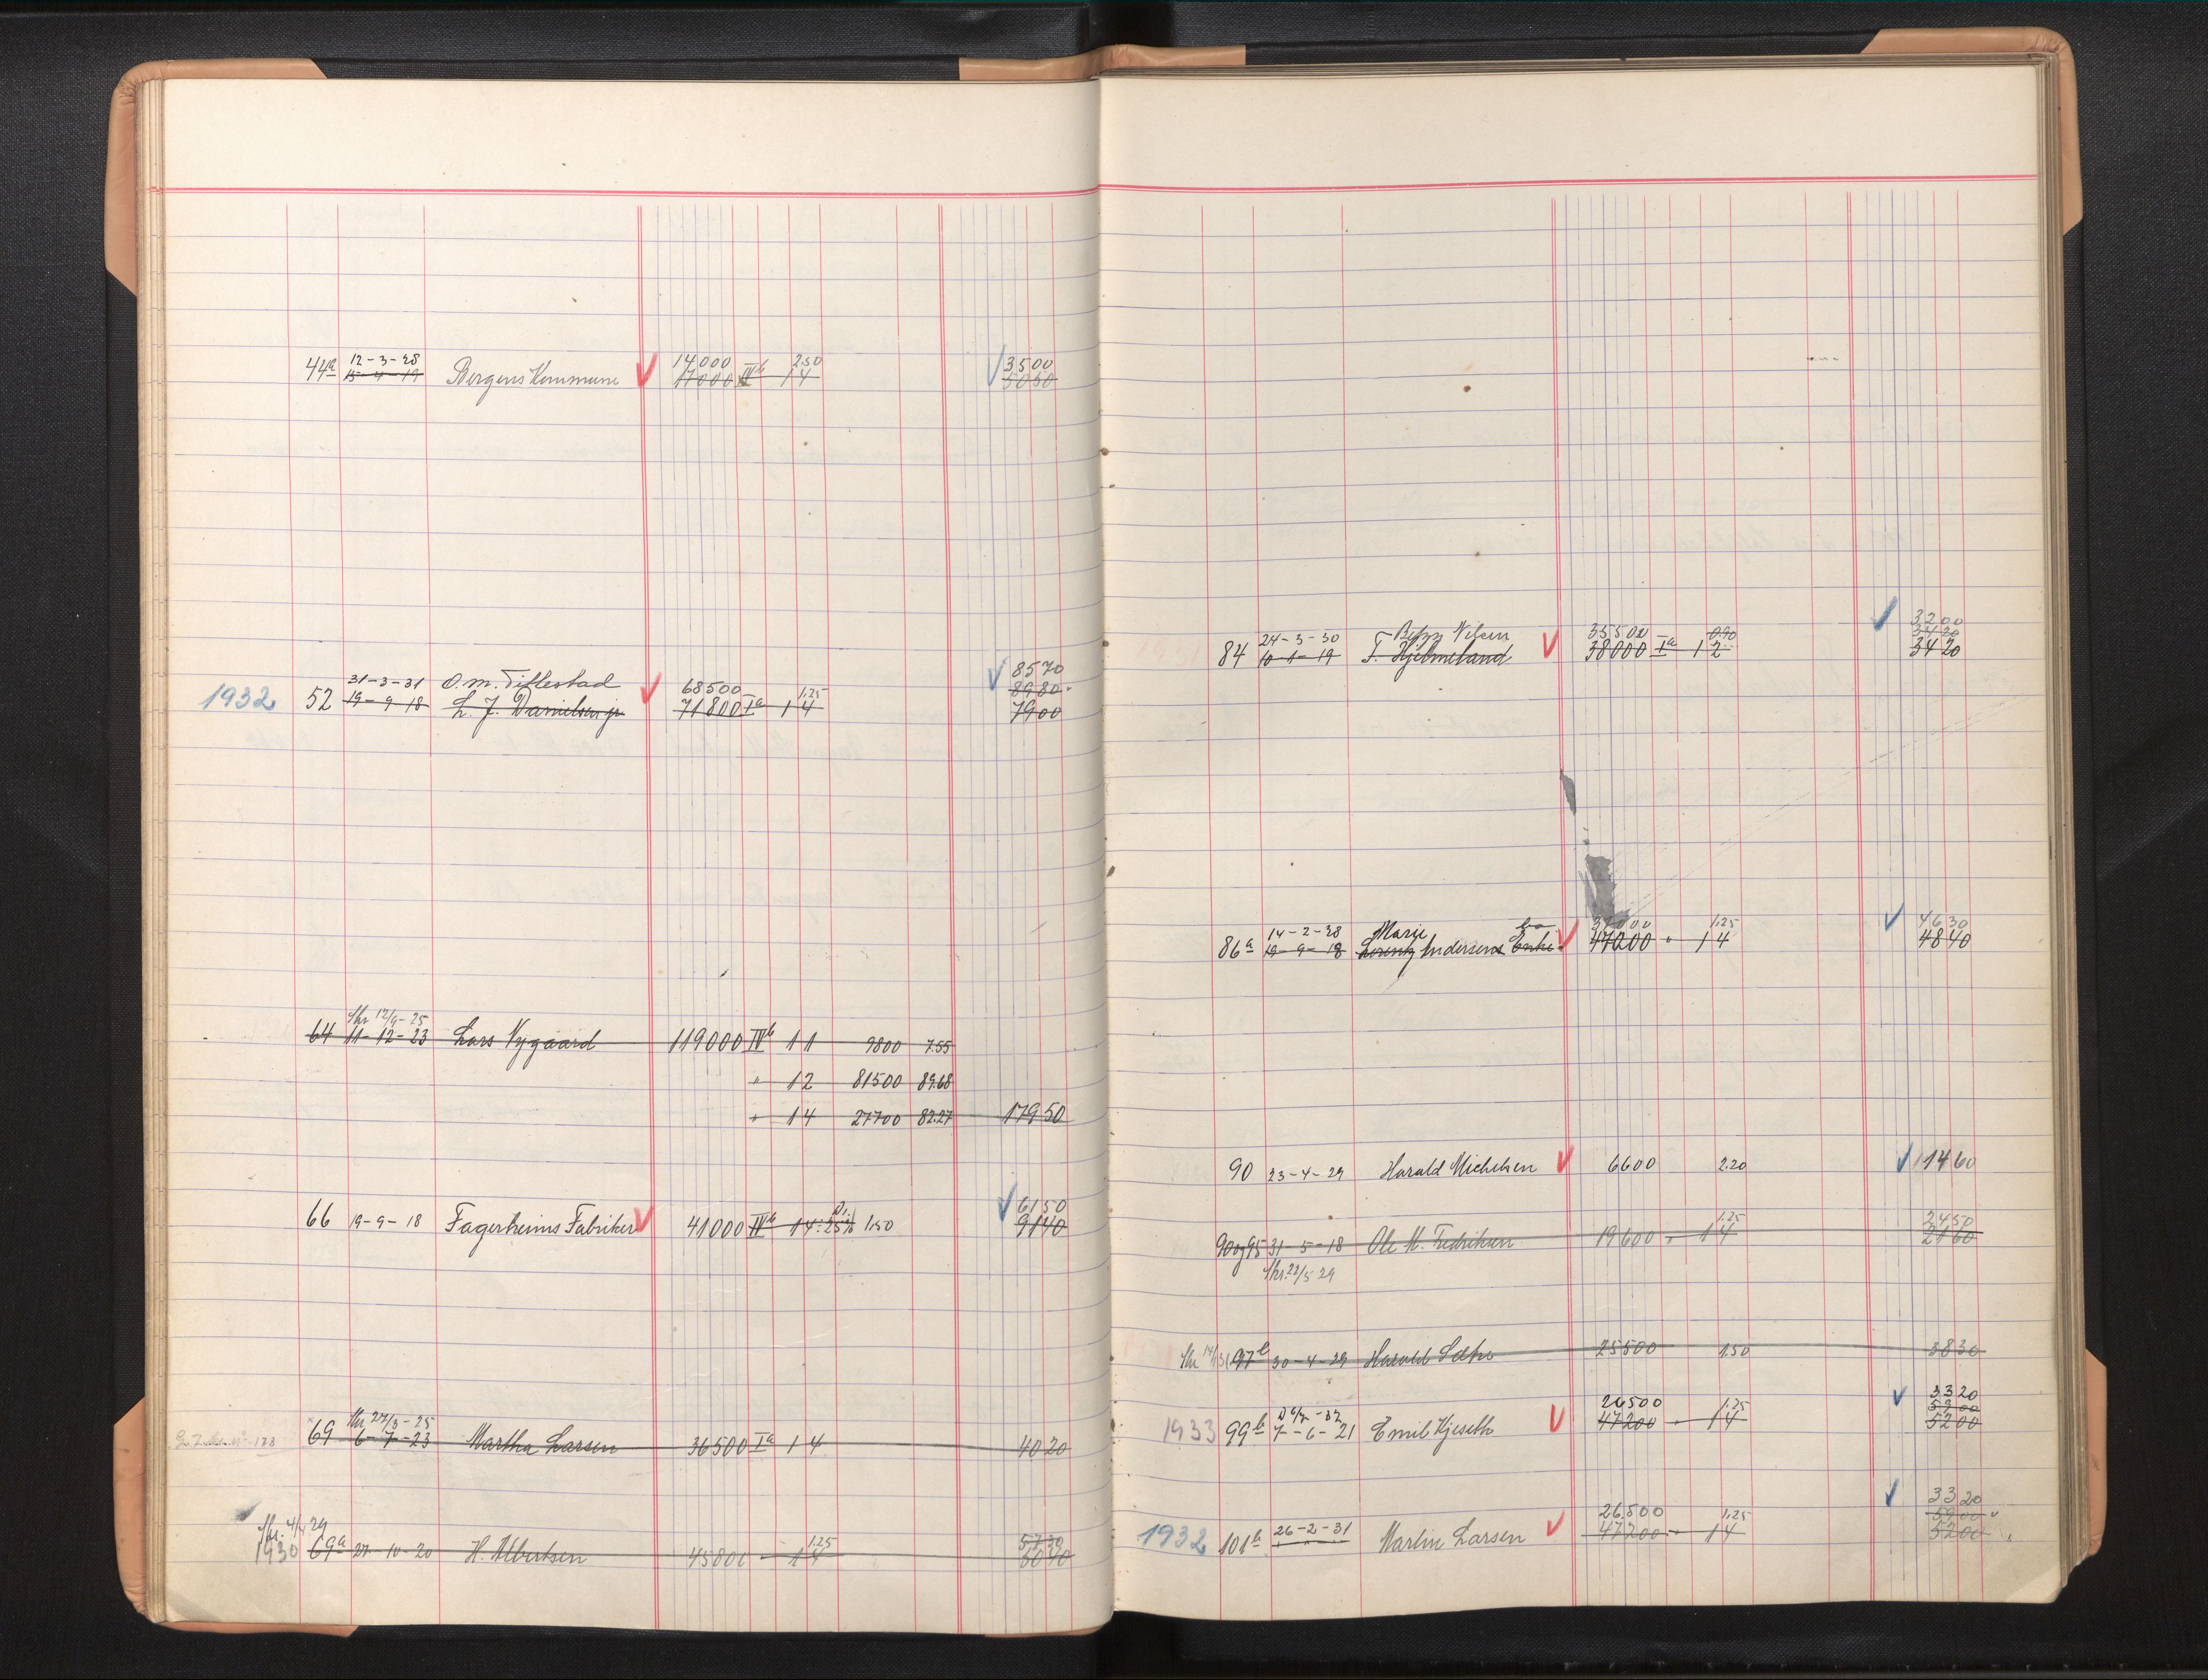 12-3-28 14000 2.50 3500
44a 15-4-19 Bergens Kommune 17000 IVb 14 5050
31-3-31 O.M. Tillestad 68500 1.25 8570
8980
1932 52 19-9-18 L. J. Danielsen jr 71800 Ia 14 7900
Skr 12/9-25
64 11-12-23 Lars Nygaard 119000 IVb 11 9800 7.55
" 12 81500 89.68
" 14 27700 82.27 17950
6150
66 19-9-18 Fagerheims Fabriker 41000 IVb 14 ÷ 25% 1.50 9140
Skr 27/3-25
69 6-7-23 Martha Larsen 36500 Ia 14 4020
Skr. 4/4 29 1.25 5730
1930 69a 27-10-20 H. Albertsen 45800 14 6040
24-3-30 Nilsen 35500 0.90 3200
3420
84 10-1-19 T. Hjelmeland 38000 Ia 12 3420
14-2-28 Marie 37000 1.25 4630
86a 19-9-18 Lorentz Andersens Enke 47200 " 14 4840
90 23-4-29 Harald Michelsen 6600 2.20 1460
1.25 2450
90og95 31-5-18 Ole M. Fredriksen 19600 " 14 2160
Skr. 22/5 29
97b 30-4-29 Harald 25500 1.50 3830
26500 1.25 3320
5900
1933 99b 7-6-21 Emil Kjeseth 47200 " 14 5200
26-2-31 26500 1.25 3320
5900 "
1932 101b Martin Larsen 47200 " 14 5200